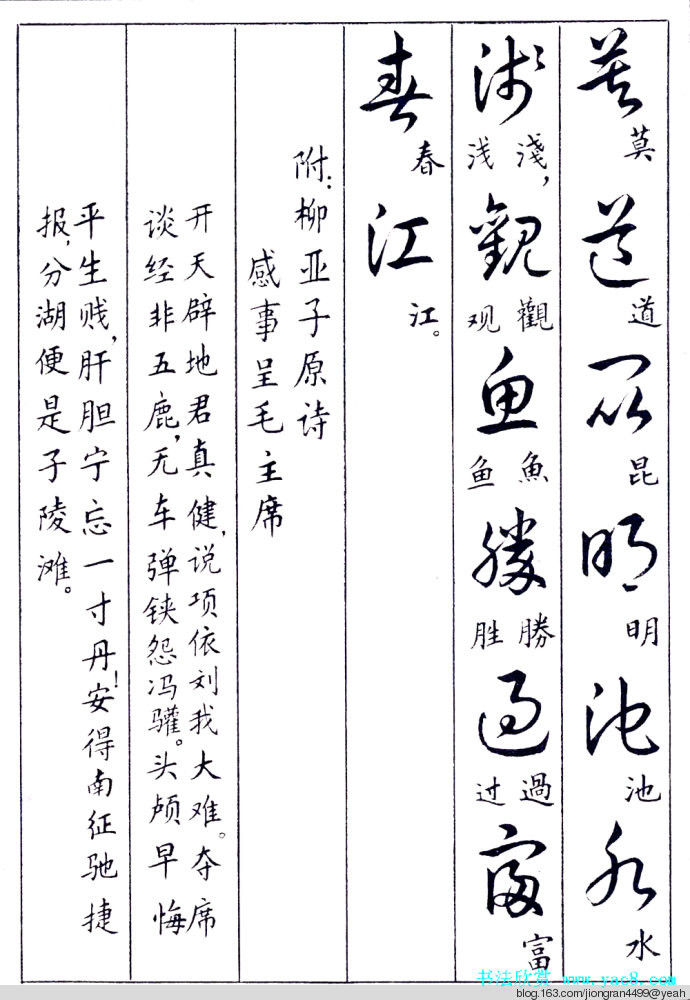 莫道昆明池水
莫道昆明池水
浅观鱼胜过富
淺,觀魚勝過富
浅观鱼胜过
春江
春江。
附:柳亚子原诗
感事呈毛主席
开天辟地君真健,说项依刘我大难。夺席
谈经非五鹿,无车弹铗怨冯驩。头颅早悔
平生贱,肝胆宁忘一寸丹!安得南征驰捷
报,分湖便是子陵滩。
书法欣赏 www.yac8.com
blog.163.com/jiongran4499@yeah